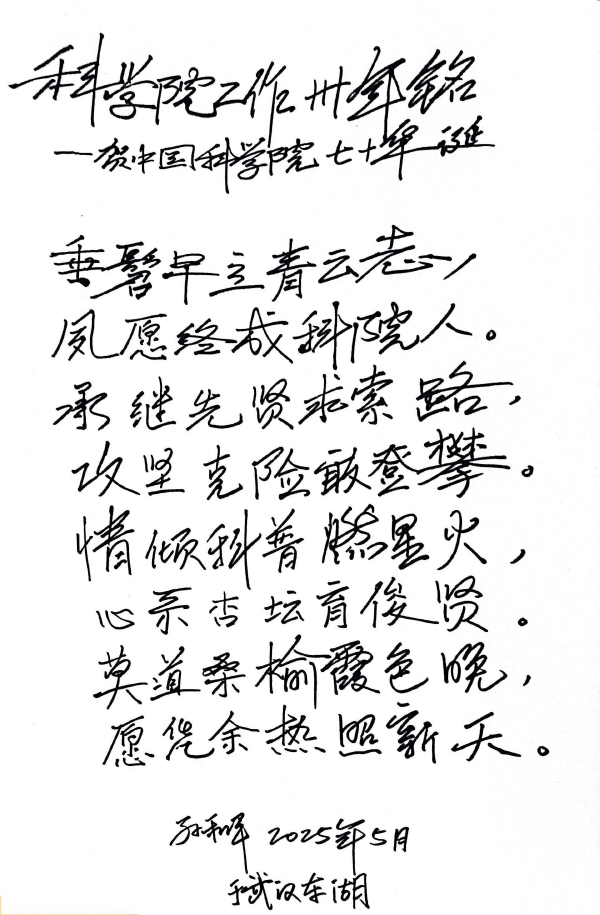 科学院工作卅年铭
—贺中国科学院七十华诞
垂髫早立青云志，
夙愿终成科院人。
承继先贤求索路，
攻坚克险敢登攀。
情倾科普燃星火，
心系杏坛育俊贤。
莫道桑榆霞色晚，
愿凭余热照新天。
孙和平 2025年5月
于武汉东湖